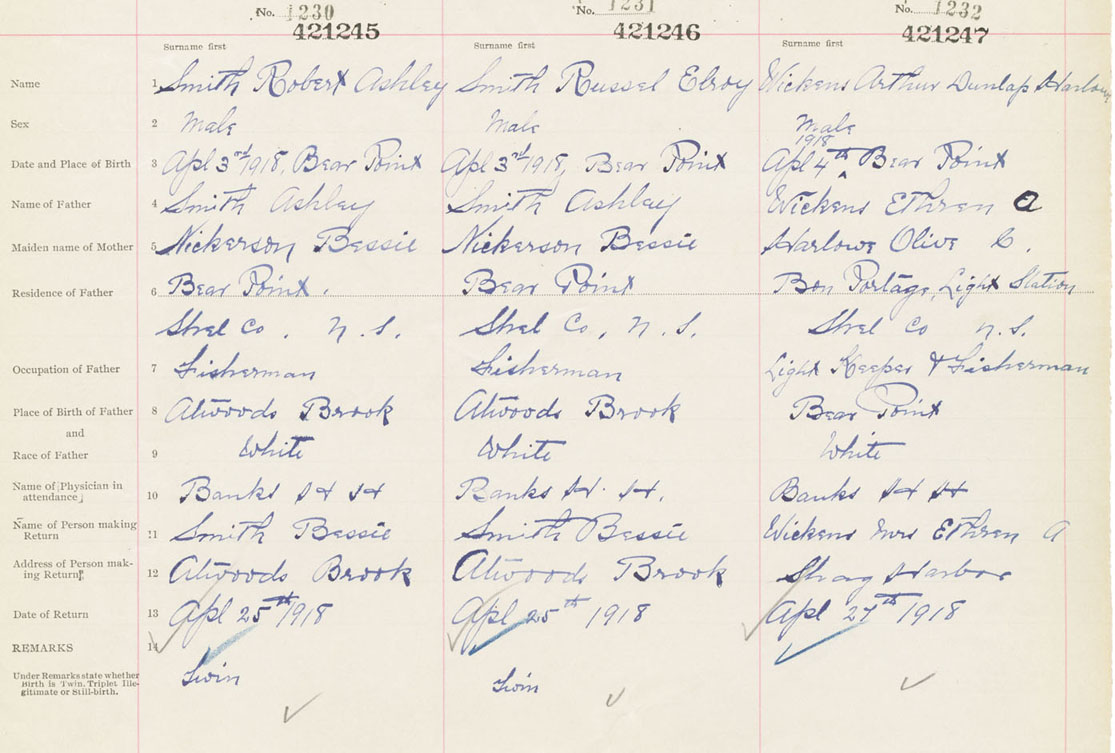 No. 1230 No. 1231 No. 1232
421245 421246 421247
Surname first Surname first Surname first
Name 1 Smith Robert Ashley Smith Russel Elroy Wickens Arthur Dunlap Harlow
Sex 2 Male Male Male
1918
Date and Place of Birth 3 Apl 3rd 1918, Bear Point Apl 3rd 1918, Bear Point Apl 4th Bear Point
Name of Father 4 Smith Ashley Smith Ashley Wickens Ethren A
Maiden name of Mother 5 Nickerson Bessie Nickerson Bessie Harlowe Olive C.
Residence of Father 6 Bear Point. Bear Point Bon Portage, Light Station
Shel Co, N.S. Shel Co, N.S. Shel Co N.S.
Occupation of Father 7 Fisherman Fisherman Light Keeper & Fisherman
Place of Birth of Father 8 Atwoods Brook Atwoods Brook Bear Point
and
Race of Father 9 White White White
Name of Physician in
attendance 10 Banks H H Banks H. H. Banks H H
Name of Person making
Return 11 Smith Bessie Smith Bessie Wickens Mrs Ethren A
Address of Person mak-
ing Return 12 Atwoods Brook Atwoods Brook Shag Harbor
Date of Return 13 Apl 25th 1918 Apl 25th 1918 Apl 27th 1918
REMARKS 14
Under Remarks state whether
Birth is Twin, Triplet Ille-
gitimate or Still-birth.
Twin Twin